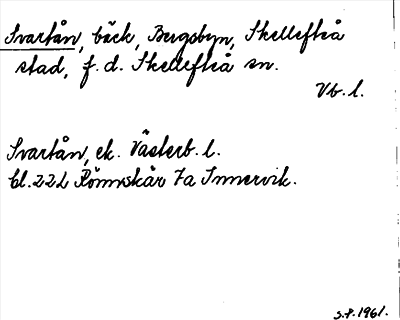 Svartån, bäck, Bergsbyn, Skellefteå
stad, f. d. Skellefteå sn.
Vb. l.
Svartån, ek. Västerb. l.
bl. 222 Rönnskär 7a Innervik.
S.P. 1961.